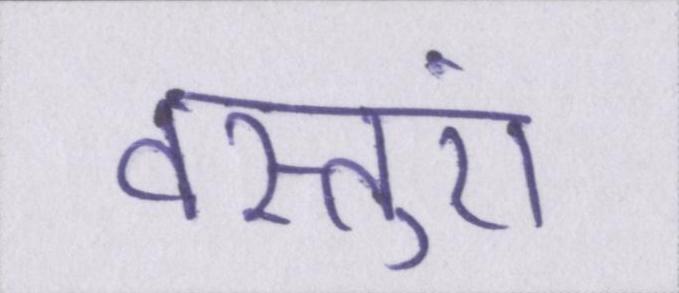 वस्तुएं